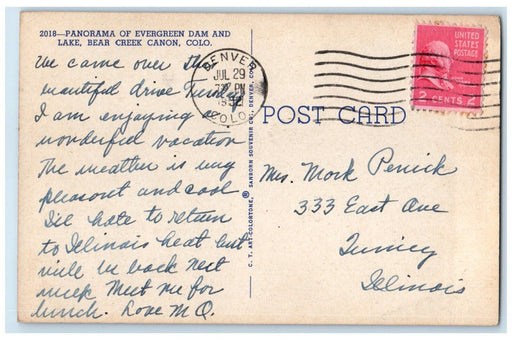 2018—PANORAMA OF EVERGREEN DAM AND
LAKE, BEAR CREEK CANON, COLO.
We came over this
beautiful drive
I am enjoying a
wonderful vacation
The weather is very
pleasant and cool
I'll hate to return
to Illinois heat but
will be back next
week Meet me for
lunch. Love M.Q.
C. T. ART-COLORTONE ® SANBORN SOUVENIR CO., DENVER, COLO.
DENVER
JUL 29
PM
COLO.
UNITED
STATES
POSTAGE
2 CENTS 2
POST CARD
Mrs. Mark Penick
333 East Ave
Quincy
Illinois